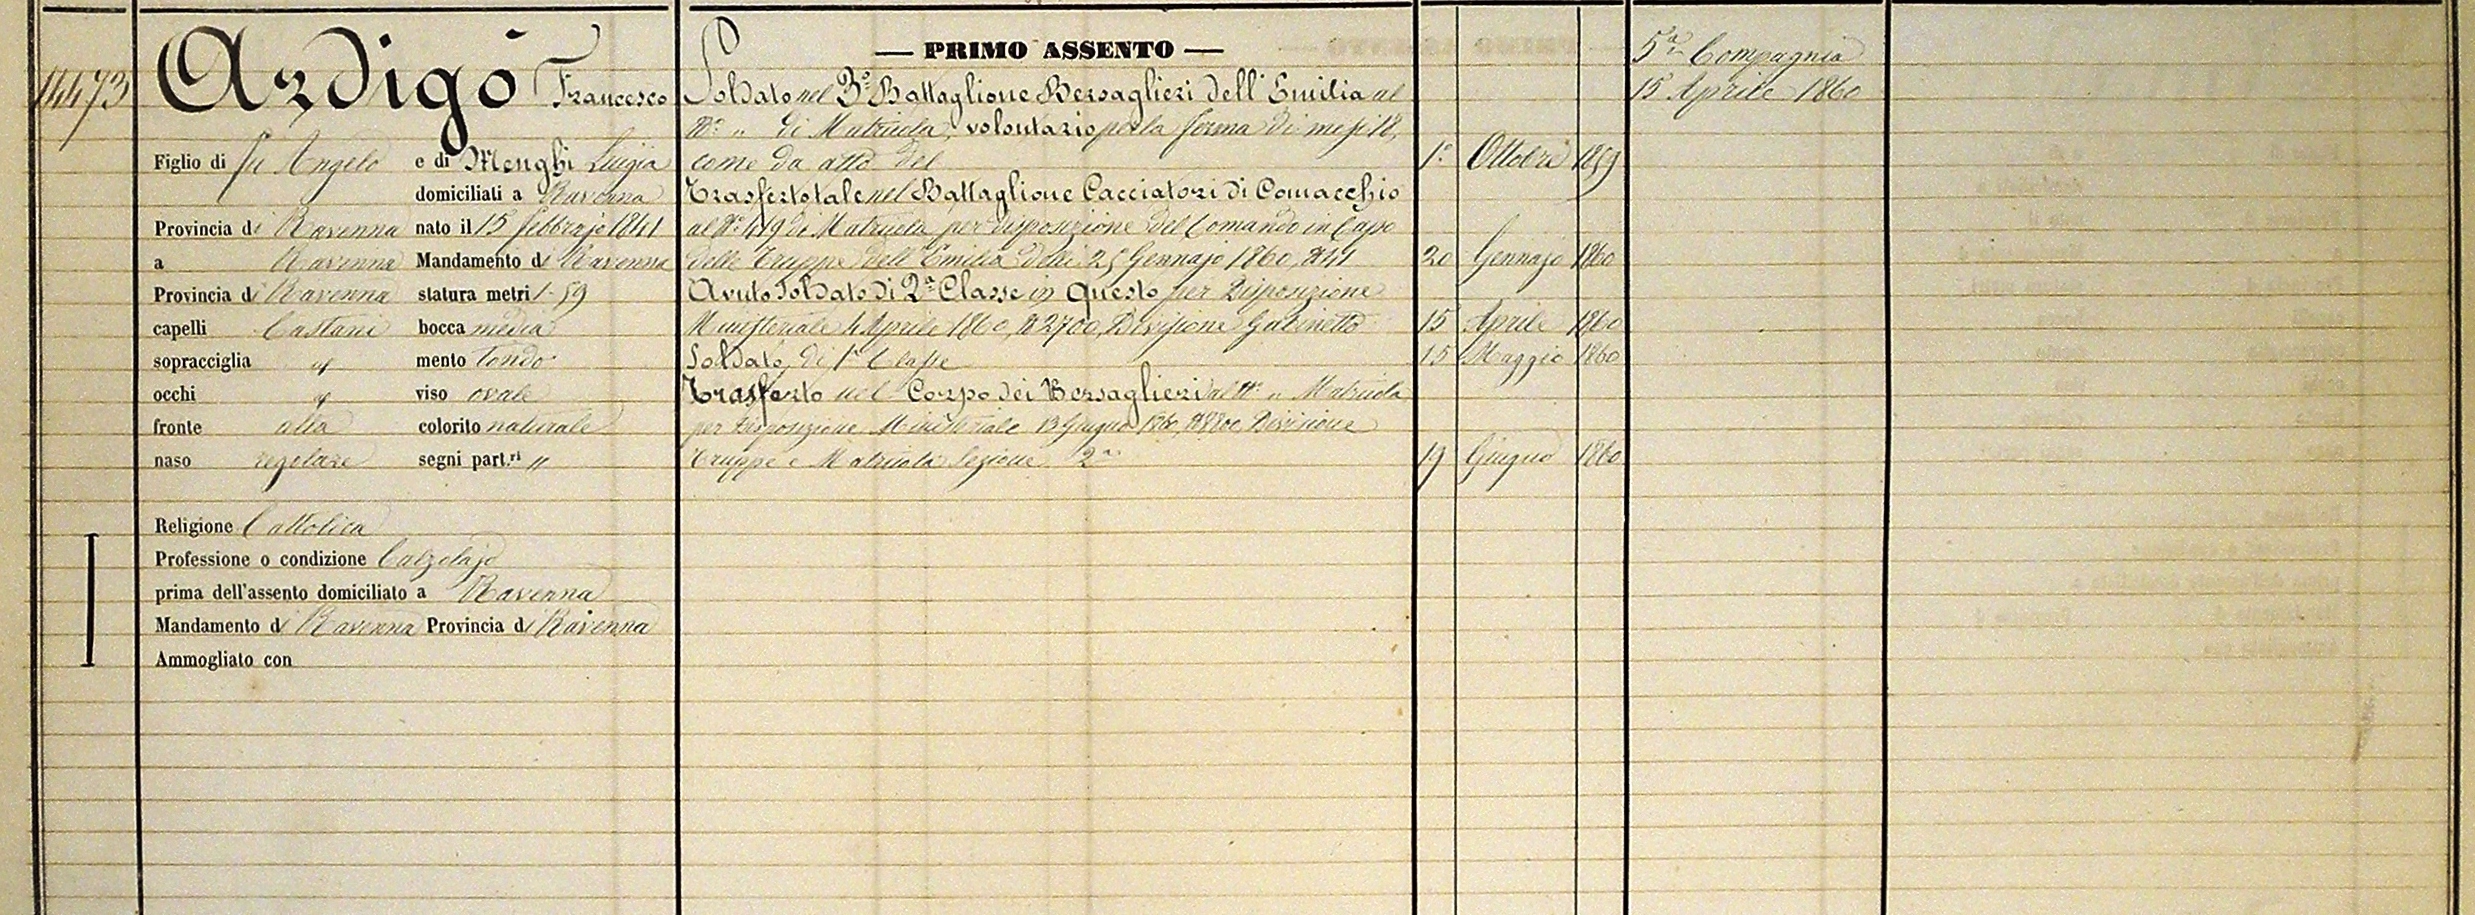 14473
Ardigò Francesco
Figlio di fu Angelo e di Menghi Luigia
domiciliati a Ravenna
Provincia di Ravenna nato il 15 febbrajo 1841
a Ravenna Mandamento di Ravenna
Provincia di Ravenna statura metri 1.59
capelli Castani bocca media
sopracciglia " mento tondo
occhi " viso ovale
fronte alta colorito naturale
naso regolare segni part.ri "
Religione Cattolica
Professione o condizione Calzolajo
prima dell'assento domiciliato a Ravenna
Mandamento di Ravenna Provincia di Ravenna
Ammogliato con
— PRIMO ASSENTO —
Soldato nel 3° Battaglione Bersaglieri dell'Emilia al
N° " di Matricola, volontario per la ferma di mesi 18,
come da atto del 1° Ottobre 1859
Trasferto tale nel Battaglione Cacciatori di Comacchio
al N° 419 di Matricola per disposizione del Comando in Capo
delle Truppe dell'Emilia delli 25 Gennajo 1860, N 41 20 Gennajo 1860
Avuto Soldato di 2a Classe in questo per Disposizione
Ministeriale 4 Aprile 1860, N 2700, Divisione Gabinetto 15 Aprile 1860
Soldato di 1a Classe 15 Maggio 1860
Trasferto nel Corpo dei Bersaglieri al N° " Matricola
per disposizione Ministeriale 13 Giugno 1860, Divisione
Truppe e Matricola Sezione 2a 19 Giugno 1860
5a Compagnia
15 Aprile 1860